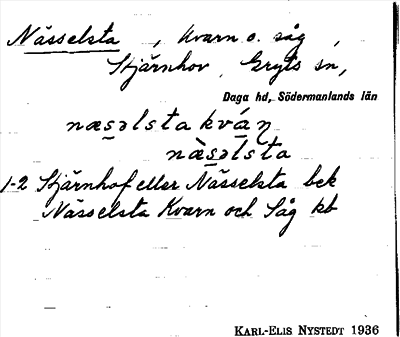 Nässelsta , kvarn o. såg ,
Stjärnhov, Gryts sn,
Daga hd, Södermanlands län
næs̲əlsta kvá̲ɳ
nàs̲əlsta
1-2 Stjärnhof eller Nässelsta bek
Nässelsta Kvarn och Såg kb
KARL-ELIS NYSTEDT 1936